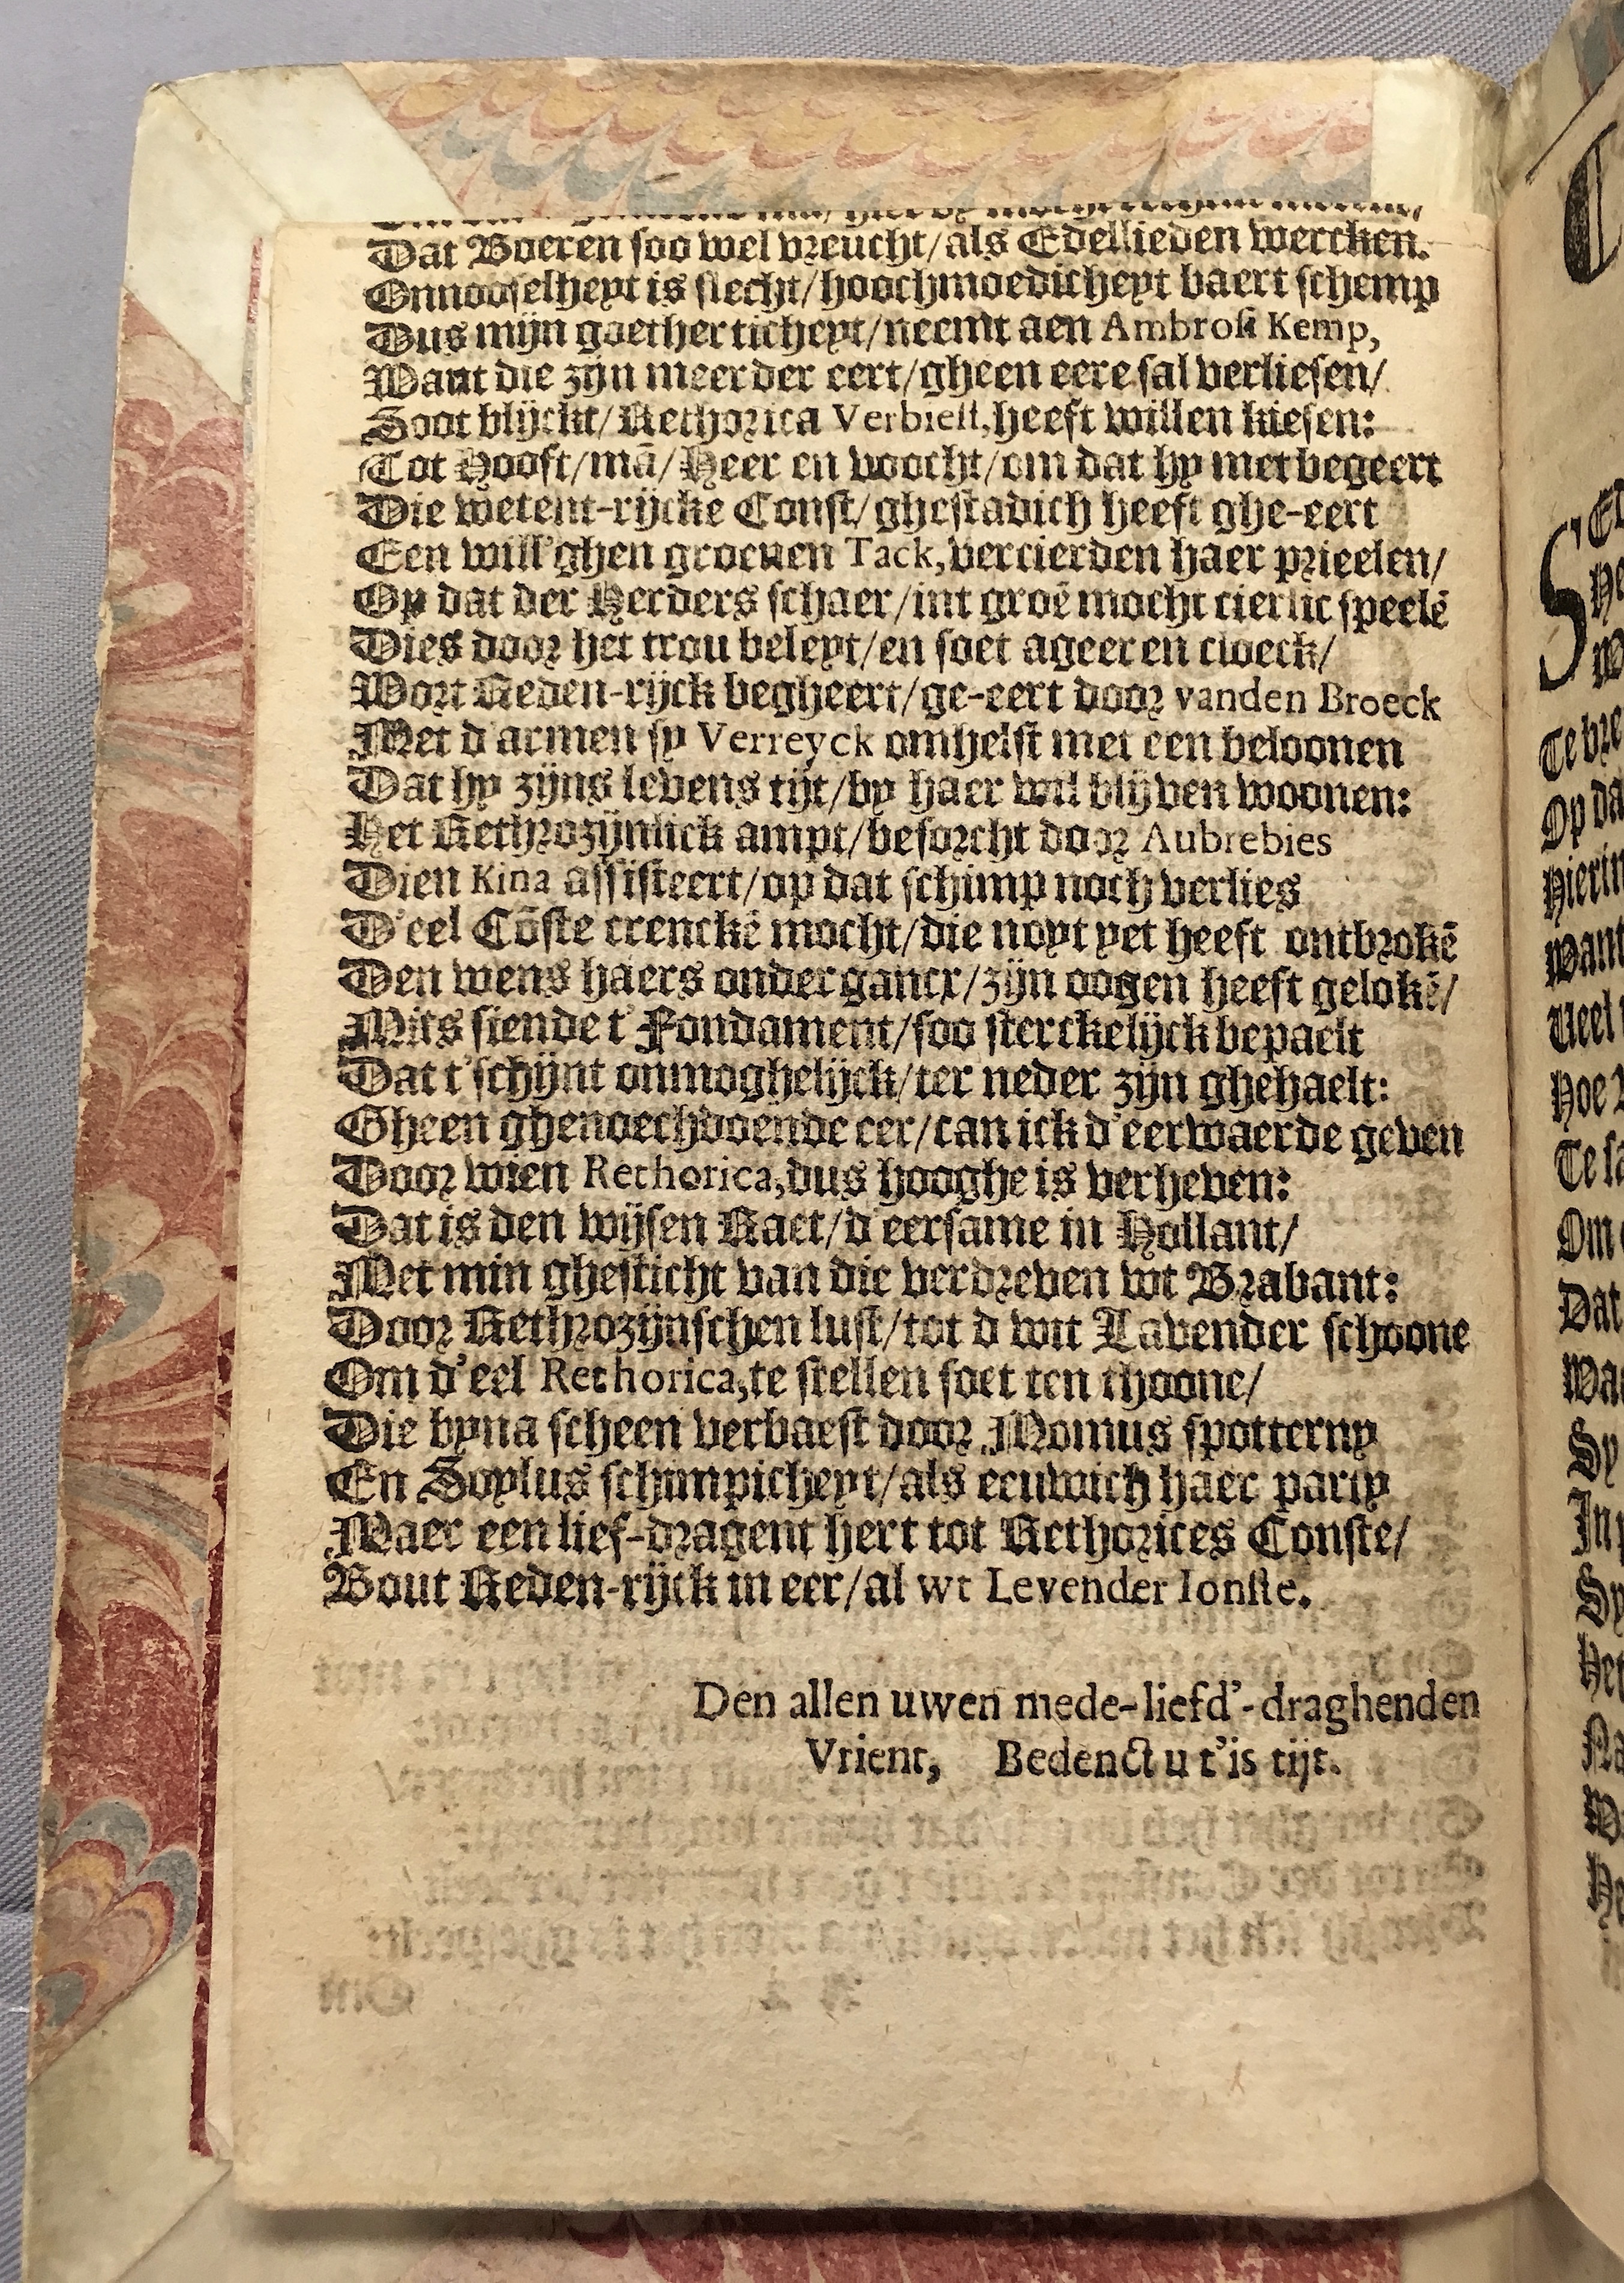 Dat Boeren soo wel vreucht/als Edellieden wercken.
Onnooselheyt is slecht/hoochmoedicheyt baert schemp
Dus mijn goethertichept/neemt aen Ambrosi Kemp,
Want die zijn meerder eert/gheen eere sal verliesen/
Soot blijckt/Rethorica Verbiest,heeft willen kiesen:
Tot Hooft/mā/Heer en voocht/om dat hy met begeert
Die wetent-rijcke Const/ghestadich heeft ghe-eert
Een will'ghen groenen Tack,vercierden haer prieelen/
Op dat der Herders schaer/int groē mocht cierlic speelē
Dies door het trou beleyt/en soet ageeren cloeck/
Wort Reden-rijck begheert/ge-eert door vanden Broeck
Met d'armen sy Verreyck omhelst met een beloonen
Dat hy zijns levens tijt/by haer wil blijven woonen:
Het Rethrozijnlick ampt/besorcht door Aubrebies
Dien Kina assisteert/op dat schimp noch verlies
D'eel Cōste crenckē mocht/die noyt yet heeft ontbrokē
Den wens haers ondergancx/zijn oogen heeft gelokē/
Mits siende t'Fondament/soo sterckelijck bepaelt
Dat t'schijnt onmoghelijck/ter neder zijn ghehaelt:
Gheen ghenoechdoende eer/can ick d'eerwaerde geven
Door wien Rethorica,dus hooghe is verheven:
Dat is den wijsen Raet/d'eersame in Hollant/
Met min ghesticht van die verdreven wt Brabant:
Door Rethrozijnschen lust/tot d wit Lavender schoone
Om d'eel Rethorica,te stellen soet ten thoone/
Die byna scheen verbaest door Momus spotterny
En Soylus schimpicheyt/als eeuwich haer party
Maer een lief-dragent hert tot Rethorices Conste/
Bout Reden-rijck in eer/al wt Levender Ionste.
Den allen uwen mede-liefd'-draghenden
Vrient, Bedenct u t'is tijt.